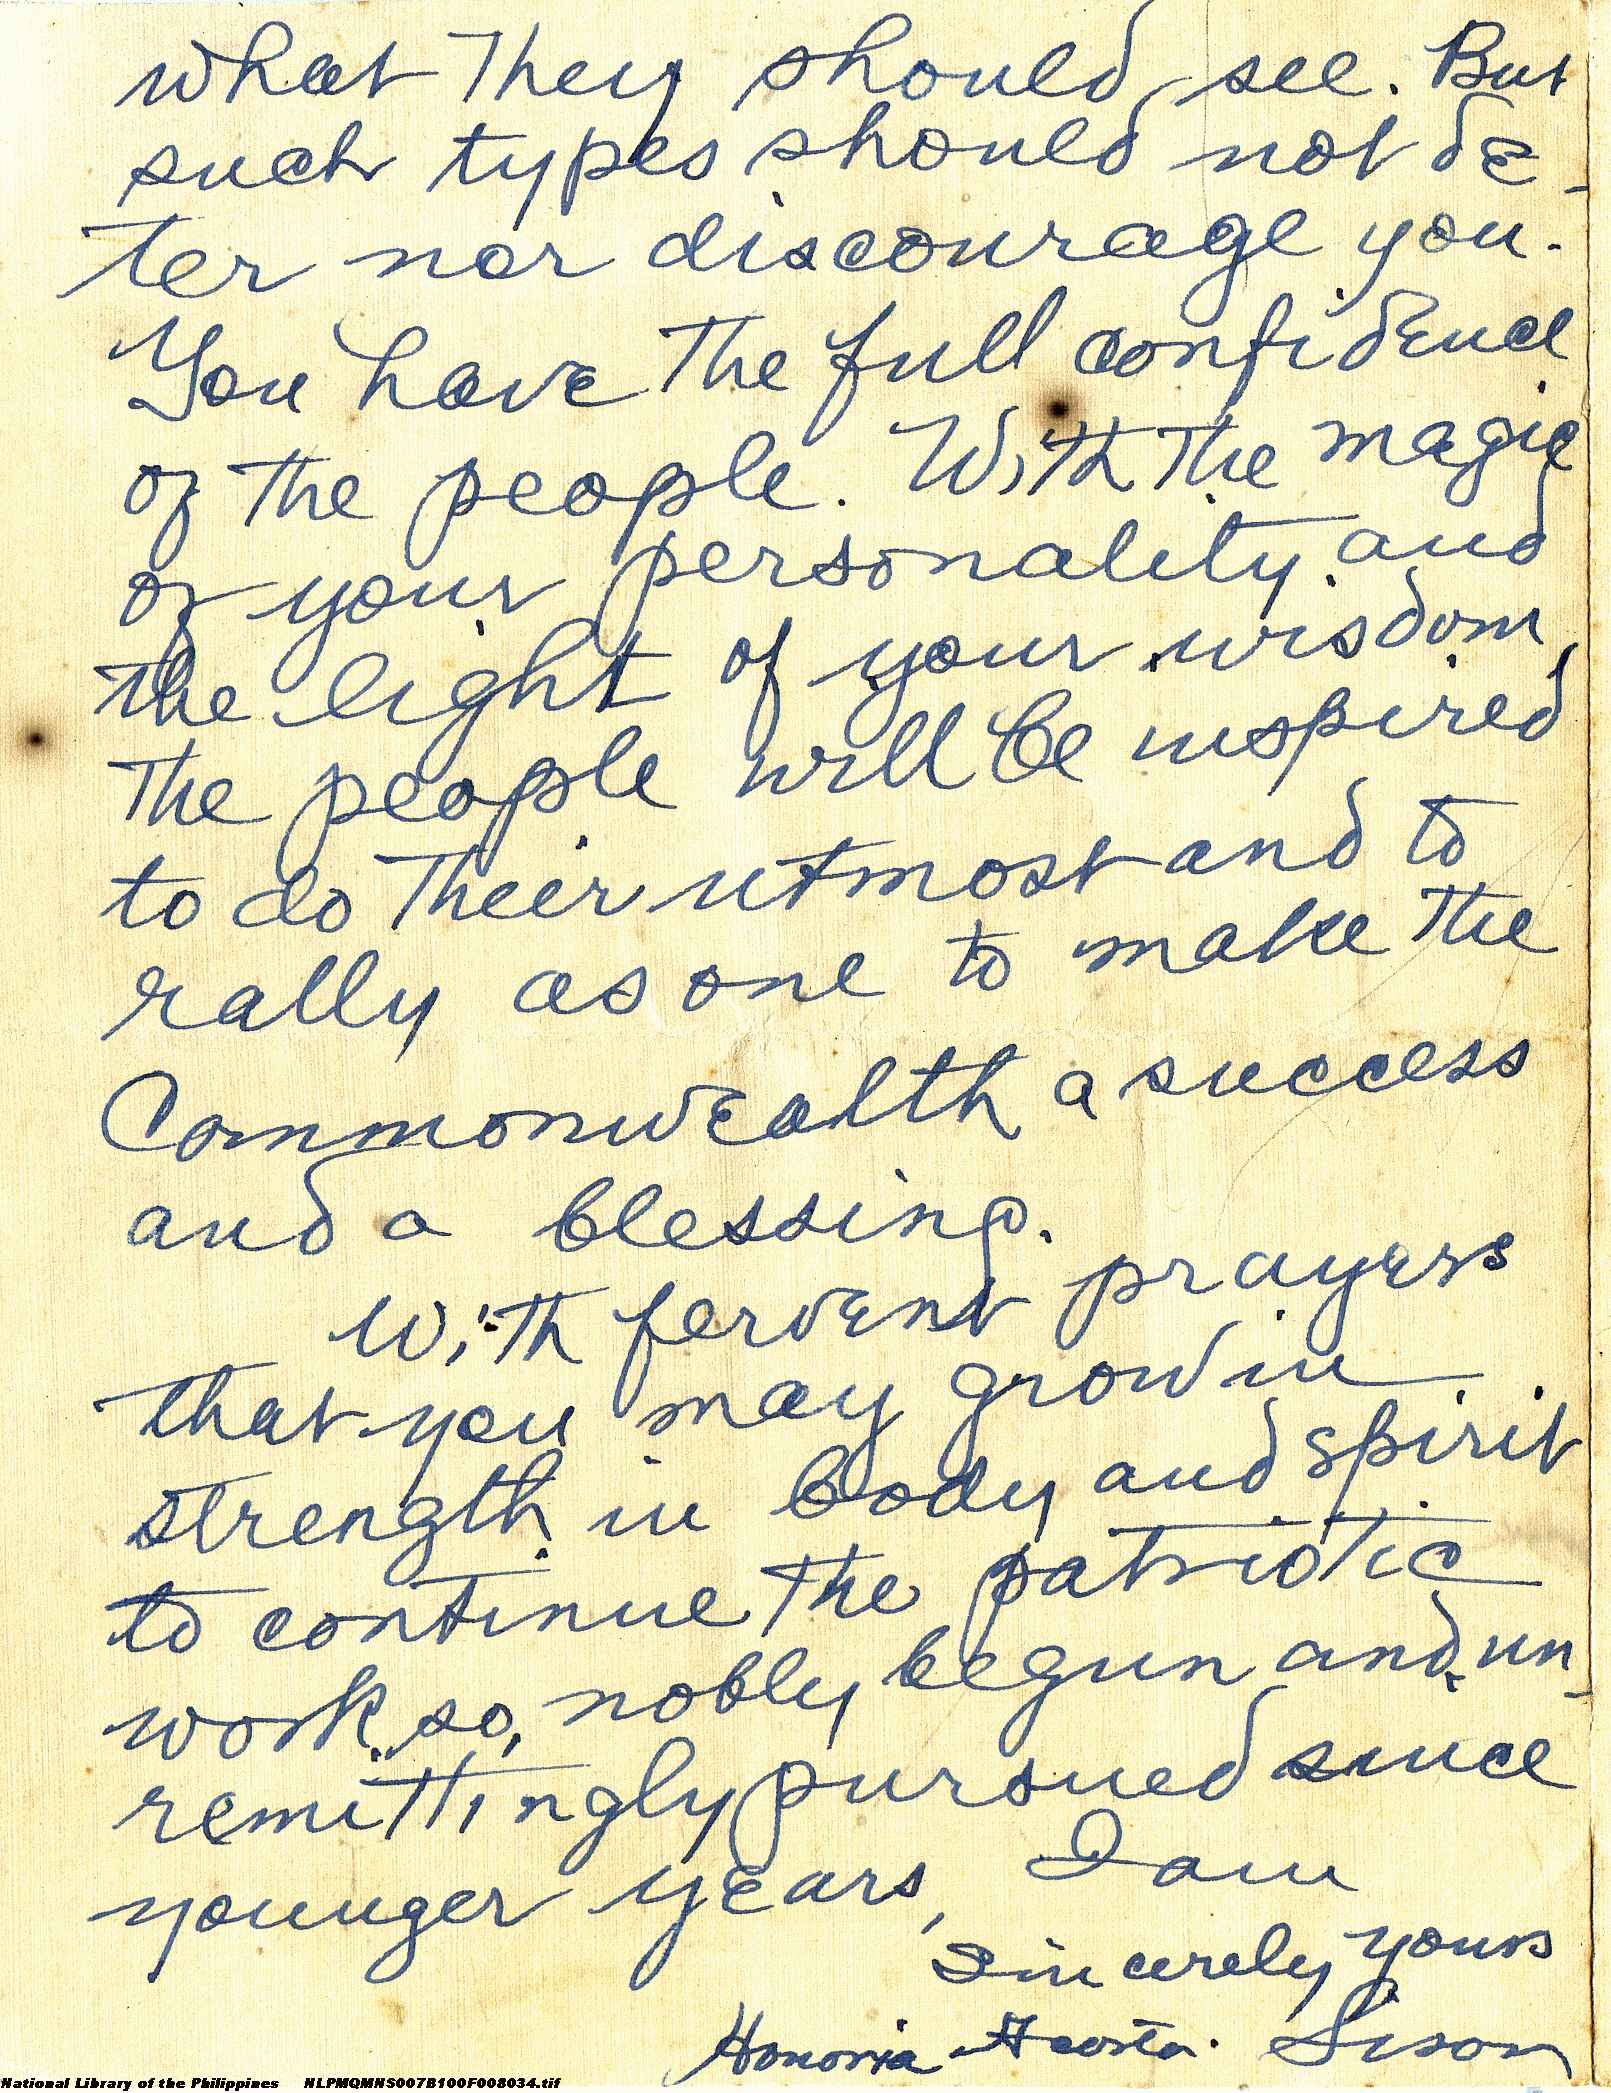 what they should see. But
such types should not de-
ter nor discourage you.
You have the full confidence
of the people. With the magic
of your personality and
the light of your wisdom,
the people will be inspired
to do their utmost and to
rally as one to make the
Commonwealth a success
and a blessing.
With fervent prayers
that you may grow in
strength in body and spirit
to continue the patriotic
work so nobly begun and un-
remittingly pursued since
younger years, I am
Sincerely yours
Honoria Acosta-Sison
National Library of the Philippines NLPMQMNS007B100F008034.tif